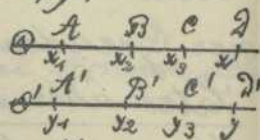 A B C D
x₁ x₂ x₃ x
A' B' C' D'
y₁ y₂ y₃ y